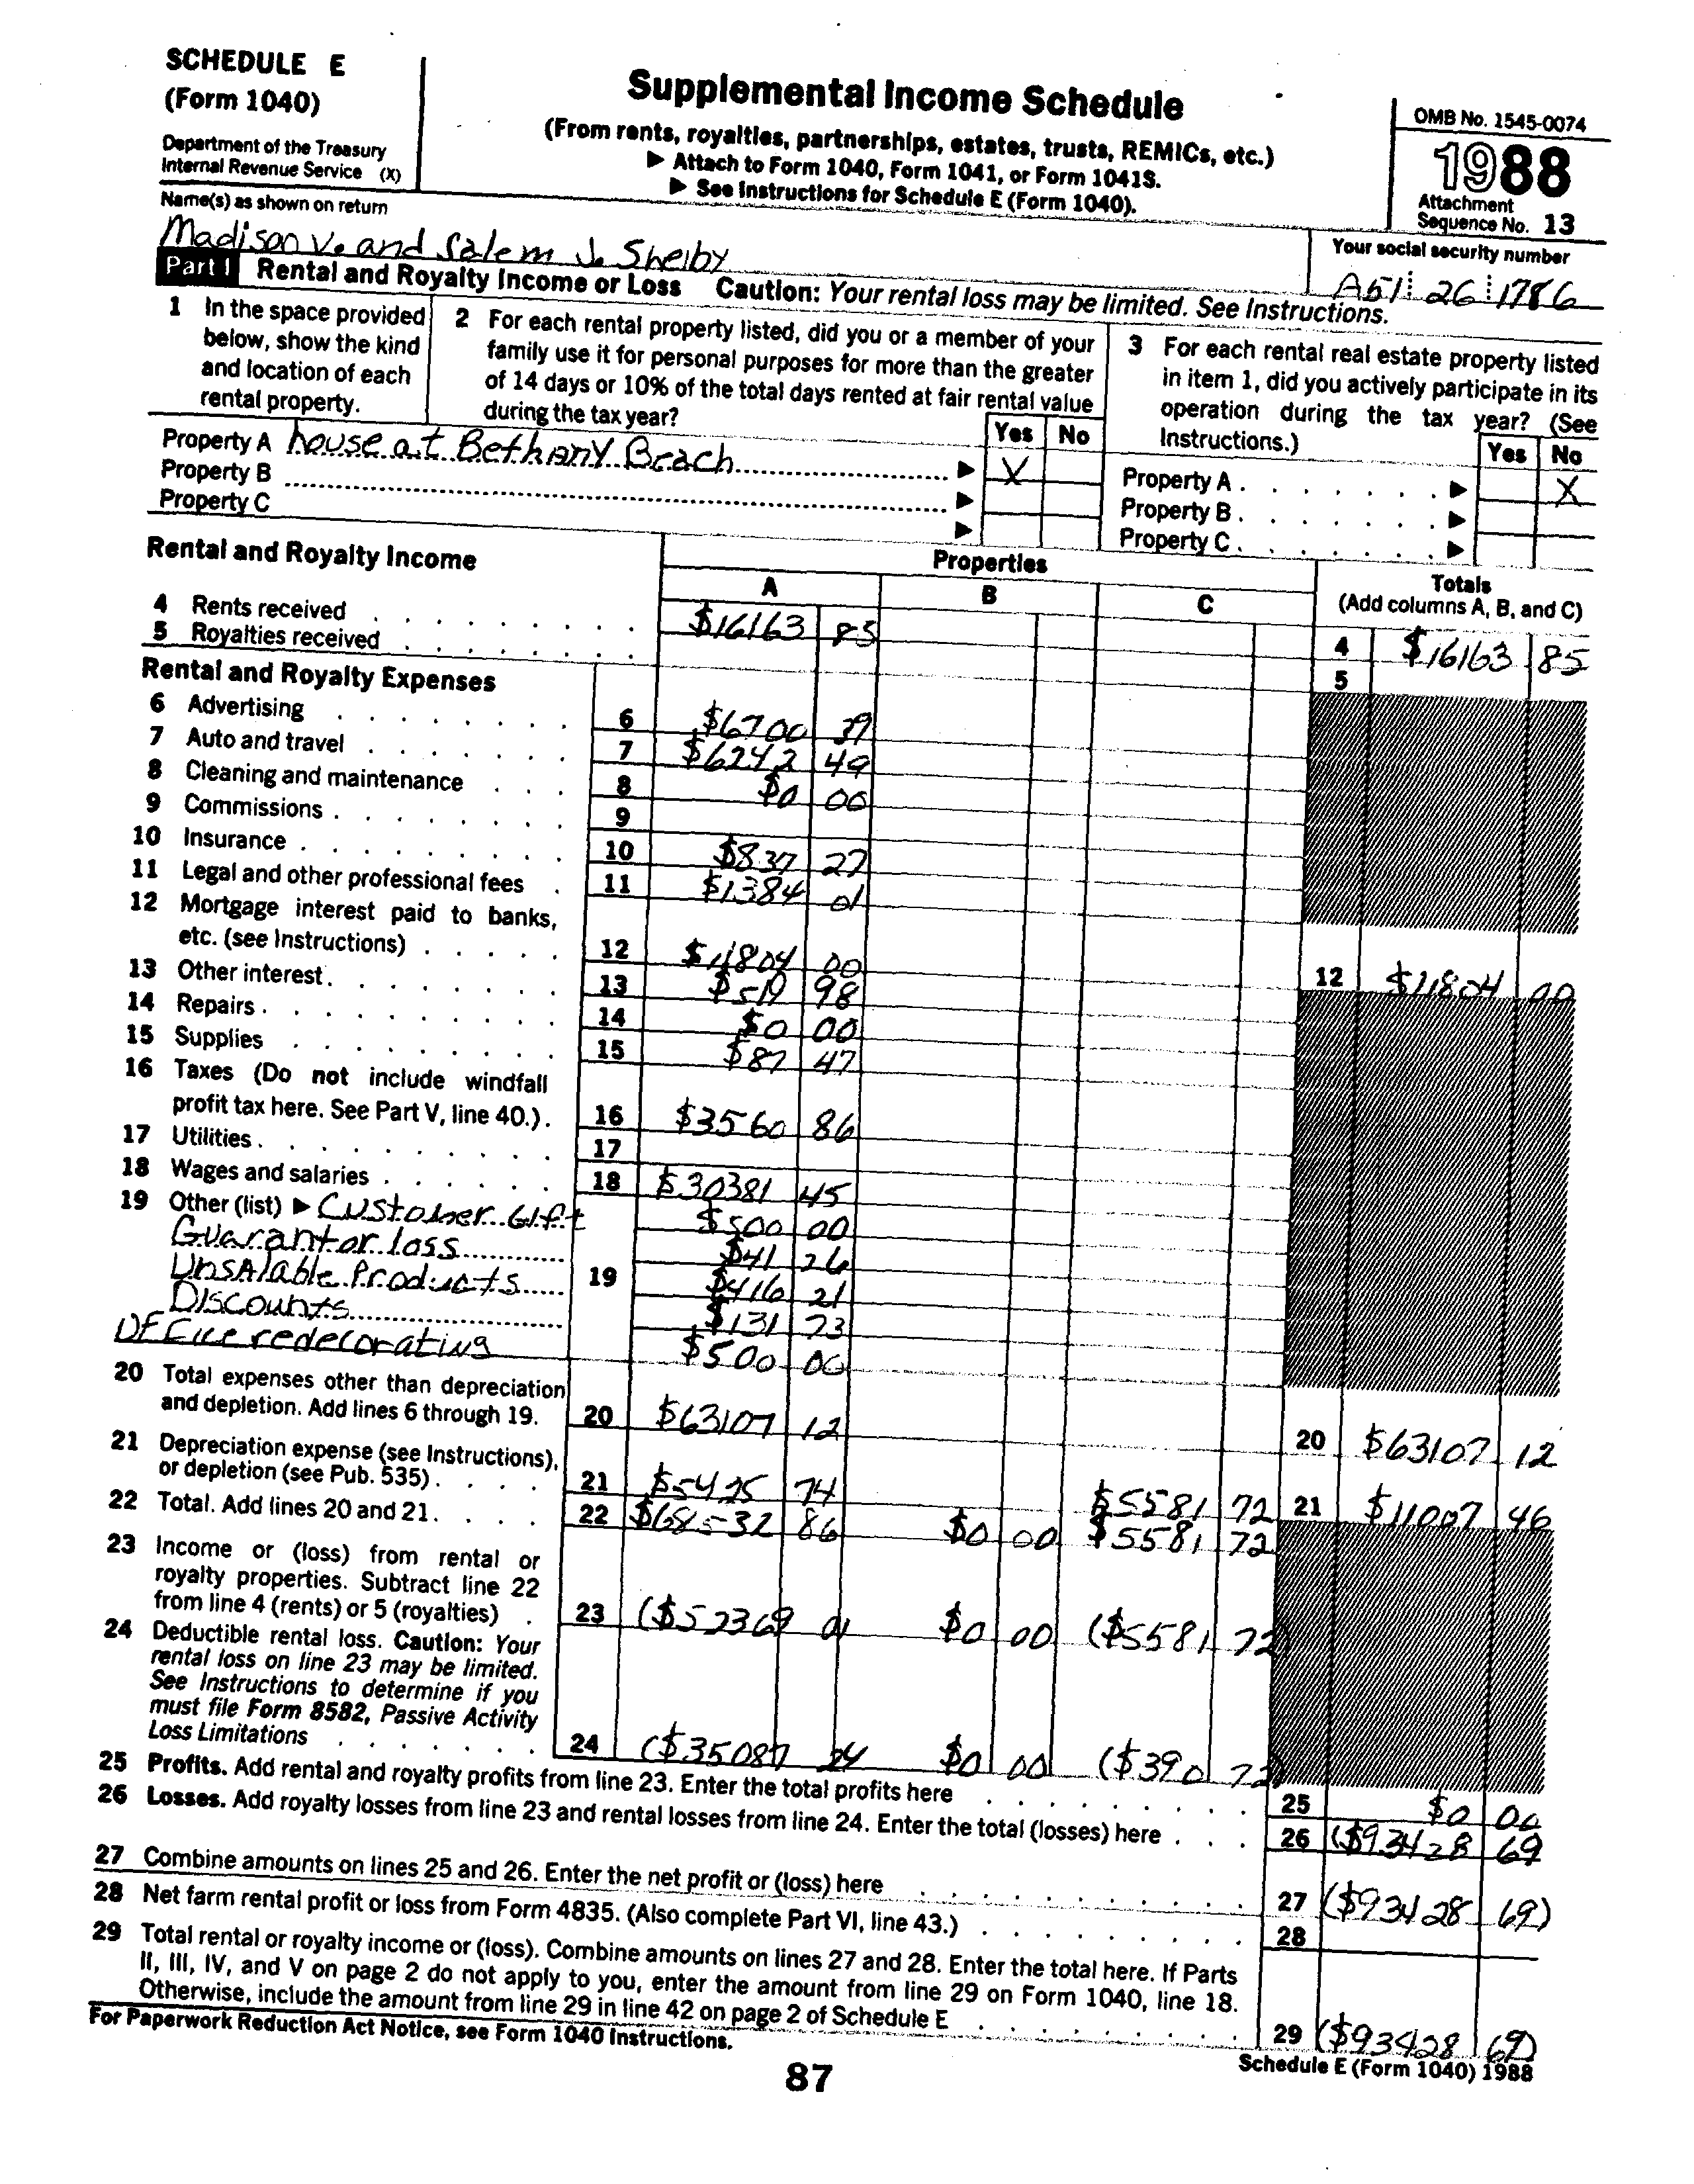 SCHEDULE E
(Form 1040)
Department of the Treasury
Internal Revenue Service (X)
Supplemental Income Schedule
(From rents, royalties, partnerships, estates, trusts, REMICs, etc.)
▶ Attach to Form 1040, Form 1041, or Form 1041S.
▶ See Instructions for Schedule E (Form 1040).
OMB No. 1545-0074
1988
Attachment
Sequence No. 13
Name(s) as shown on return
Madison V. and Salem J. Shelby
Your social security number
A51 26 1786
Part I Rental and Royalty Income or Loss Caution: Your rental loss may be limited. See Instructions.
1 In the space provided
below, show the kind
and location of each
rental property.
2 For each rental property listed, did you or a member of your
family use it for personal purposes for more than the greater
of 14 days or 10% of the total days rented at fair rental value
during the tax year?
Yes No
3 For each rental real estate property listed
in item 1, did you actively participate in its
operation during the tax year? (See
Instructions.)
Yes No
Property A house at Bethany Beach ▶ X
Property B ▶
Property C ▶
Property A ▶ X
Property B ▶
Property C ▶
Rental and Royalty Income
Properties
A B C
Totals
(Add columns A, B, and C)
4 Rents received $16163 85 4 $16163 85
5 Royalties received 5
Rental and Royalty Expenses
6 Advertising 6 $6700 39
7 Auto and travel 7 $6242 49
8 Cleaning and maintenance 8 $0 00
9 Commissions 9
10 Insurance 10 $837 27
11 Legal and other professional fees 11 $1384 01
12 Mortgage interest paid to banks,
etc. (see Instructions) 12 $11804 00 12 $11804 00
13 Other interest 13 $519 98
14 Repairs 14 $0 00
15 Supplies 15 $87 47
16 Taxes (Do not include windfall
profit tax here. See Part V, line 40.) 16 $3560 86
17 Utilities 17
18 Wages and salaries 18 $30381 45
19 Other (list) ▶ Customer Gift $500 00
Guarantor loss $41 26
Unsalable Products 19 $416 21
Discounts $131 73
Office redecorating $500 00
20 Total expenses other than depreciation
and depletion. Add lines 6 through 19. 20 $63107 12 20 $63107 12
21 Depreciation expense (see Instructions),
or depletion (see Pub. 535) 21 $5425 74 $5581 72 21 $11007 46
22 Total. Add lines 20 and 21 22 $68532 86 $0 00 $5581 72
23 Income or (loss) from rental or
royalty properties. Subtract line 22
from line 4 (rents) or 5 (royalties) 23 ($52369 01 $0 00 ($5581 72)
24 Deductible rental loss. Caution: Your
rental loss on line 23 may be limited.
See Instructions to determine if you
must file Form 8582, Passive Activity
Loss Limitations 24 ($35087 24 $0 00 ($390 72)
25 Profits. Add rental and royalty profits from line 23. Enter the total profits here 25 $0 00
26 Losses. Add royalty losses from line 23 and rental losses from line 24. Enter the total (losses) here 26 ($93428 69
27 Combine amounts on lines 25 and 26. Enter the net profit or (loss) here 27 ($93428 69)
28 Net farm rental profit or loss from Form 4835. (Also complete Part VI, line 43.) 28
29 Total rental or royalty income or (loss). Combine amounts on lines 27 and 28. Enter the total here. If Parts
II, III, IV, and V on page 2 do not apply to you, enter the amount from line 29 on Form 1040, line 18.
Otherwise, include the amount from line 29 in line 42 on page 2 of Schedule E 29 ($93428 69)
For Paperwork Reduction Act Notice, see Form 1040 Instructions.
Schedule E (Form 1040) 1988
87